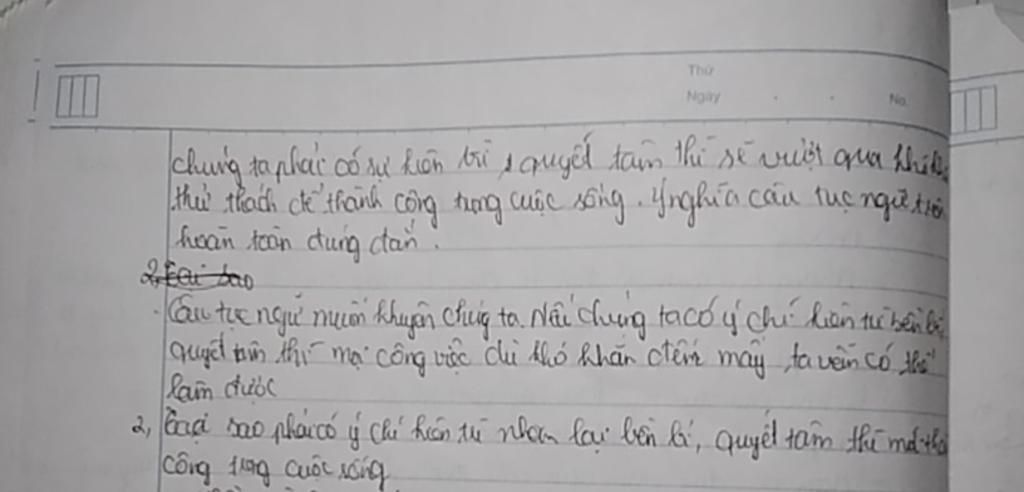 Thứ
Ngày No.
chúng ta phải có sự kiên trì, quyết tâm thì sẽ vượt qua khó
thử thách để thành công trong cuộc sống. Ý nghĩa câu tục ngữ trên
hoàn toàn đúng đắn.
2, Tại sao
Câu tục ngữ muốn khuyên chúng ta. Nếu chúng ta có ý chí kiên trì bền bỉ
quyết tâm thì mọi công việc dù khó khăn đến mấy, ta vẫn có thể
làm được
2, Tại sao phải có ý chí kiên trì nhẫn lại bền bỉ, quyết tâm thì mới
công trong cuộc sống